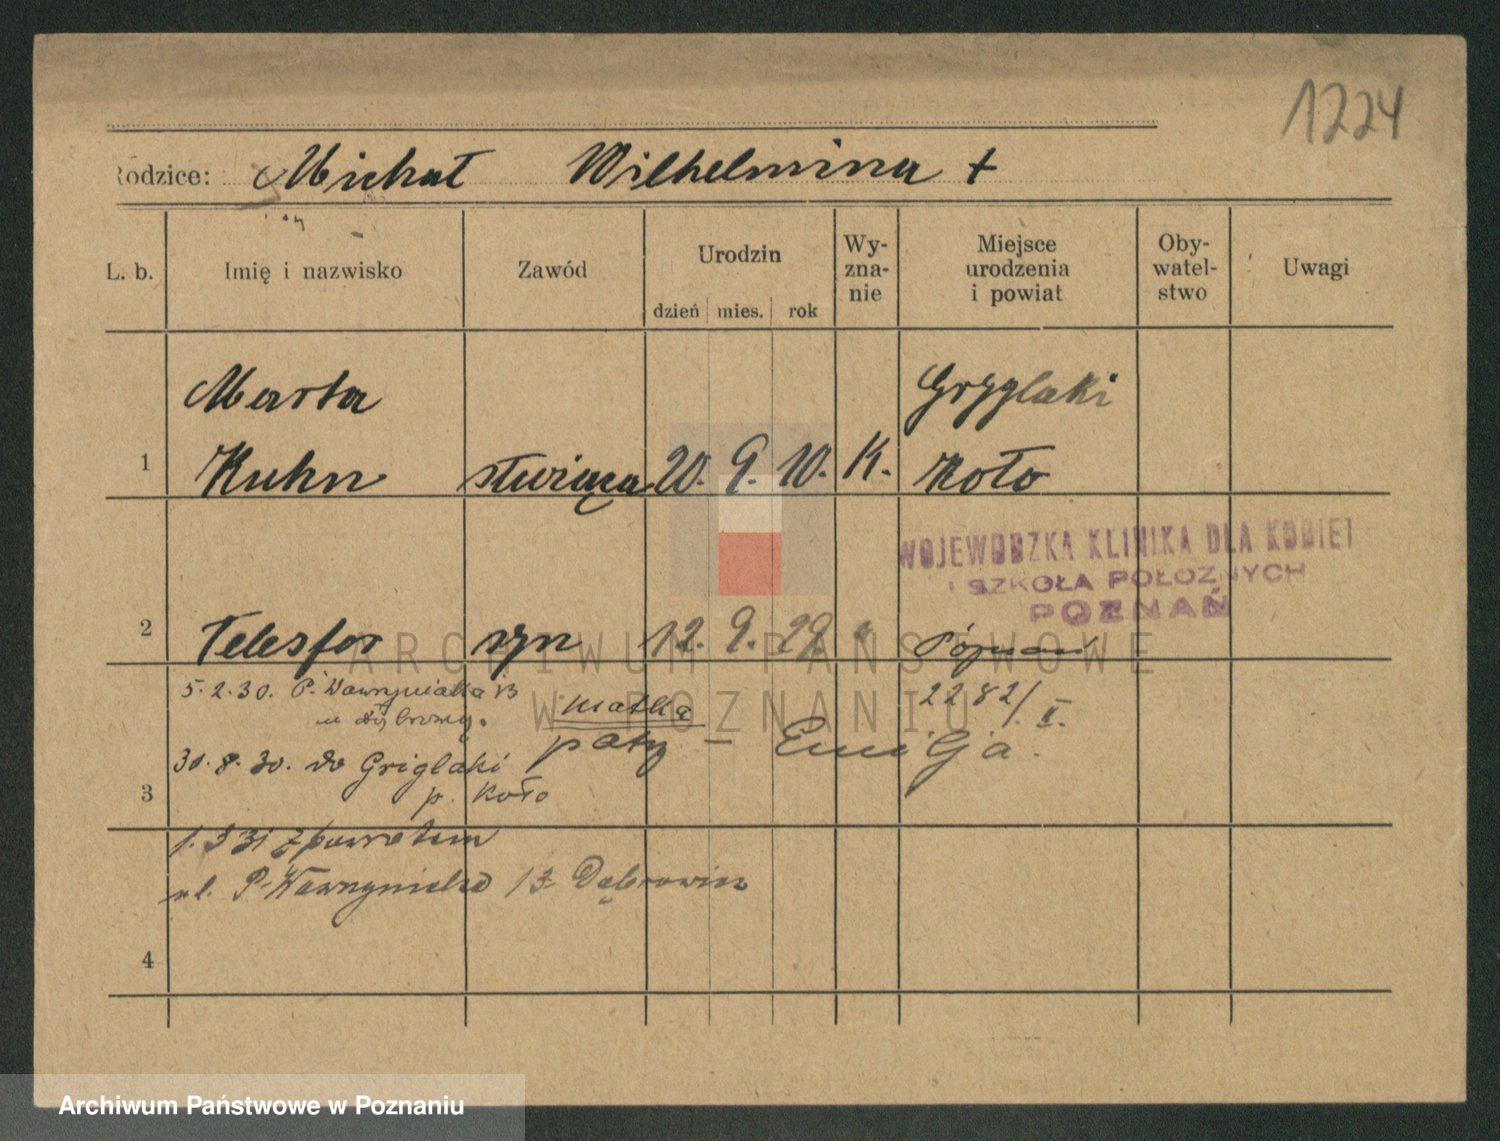 1224
Rodzice: Michał Wilhelmina +
L. b. Imię i nazwisko Zawód Urodzin dzień mies. rok Wy-zna-nie Miejsce urodzenia i powiat Oby-watel-stwo Uwagi
Marta Gryglaki
1 Kuhn służąca 20. 9. 10. K. Koło
WOJEWÓDZKA KLINIKA DLA KOBIET
I SZKOŁA POŁOŻNYCH
POZNAŃ
2 Telesfor syn 12. 9. 29. Poznań
ARCHIWUM PAŃSTWOWE
W POZNANIU
5.2.30. P. Wawrzyniaka 13 matka 2282/I.
patrz – Emilja.
30.8.30. do Griglaki
3 p. Koło
z powrotem
ul. P. Wawrzyniaka 13
4
Archiwum Państwowe w Poznaniu